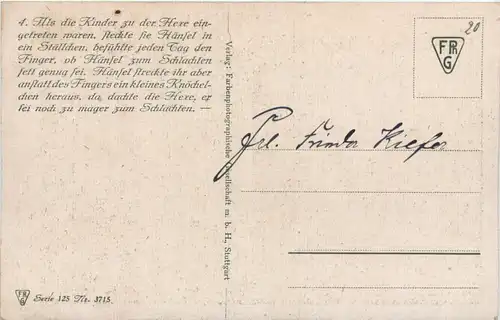 4. Als die Kinder zu der Hexe ein-
getreten waren, steckte sie Hänsel in
ein Ställchen, befühlte jeden Tag den
Finger, ob Hänsel zum Schlachten
fett genug sei. Hänsel streckte ihr aber
anstatt des Fingers ein kleines Knöchel-
chen heraus, da dachte die Hexe, er
sei noch zu mager zum Schlachten. —
Verlag: Farbenphotographische Gesellschaft m. b. H., Stuttgart
20
FRG
Frl. Frieda Kiefer
FRG Serie 125 Nr. 3715